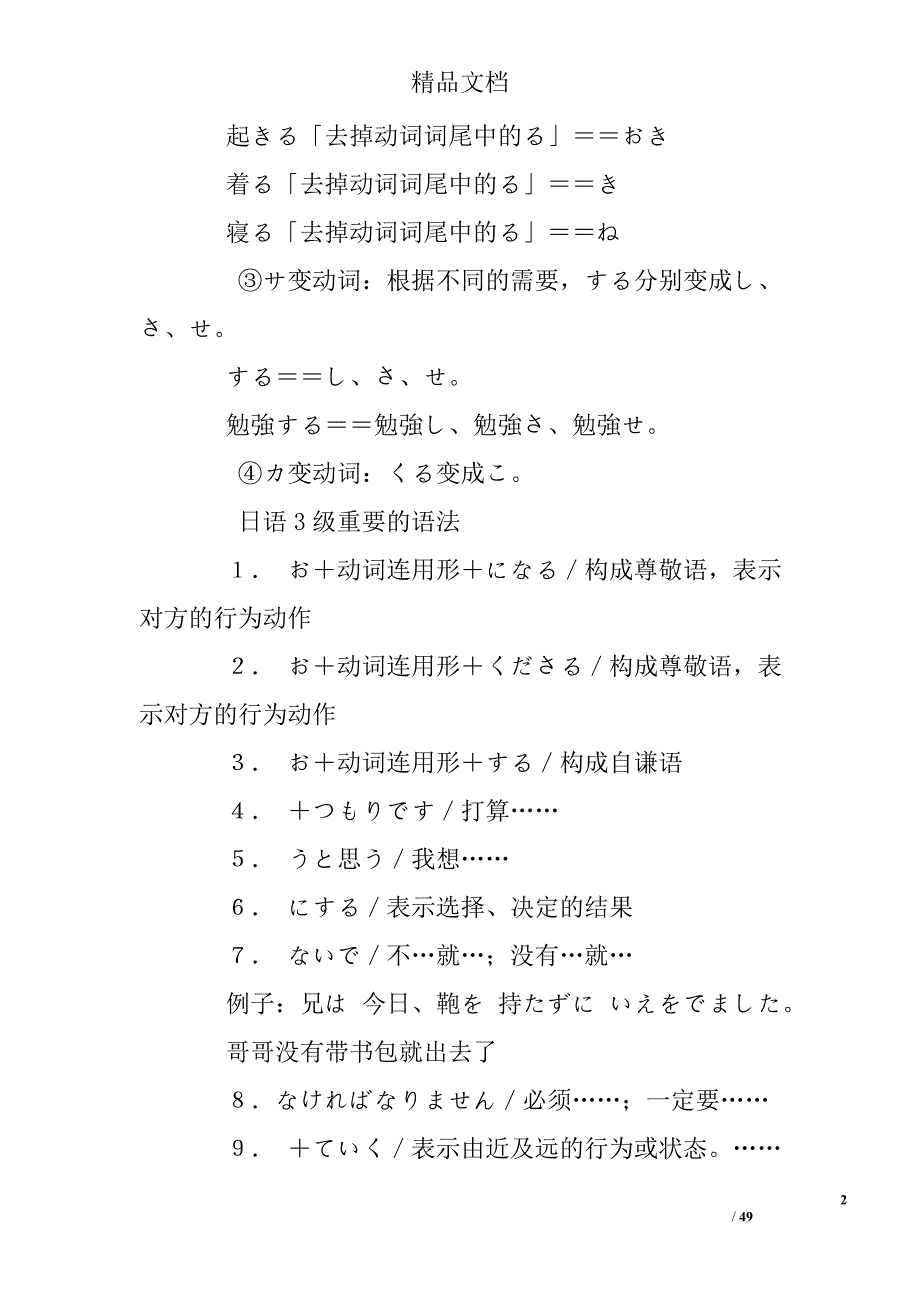 精品文档
起きる「去掉动词词尾中的る」＝＝おき
着る「去掉动词词尾中的る」＝＝き
寝る「去掉动词词尾中的る」＝＝ね
③サ变动词：根据不同的需要，する分别变成し、
さ、せ。
する＝＝し、さ、せ。
勉強する＝＝勉強し、勉強さ、勉強せ。
④カ变动词：くる变成こ。
日语３级重要的语法
１． お＋动词连用形＋になる／构成尊敬语，表示
对方的行为动作
２． お＋动词连用形＋くださる／构成尊敬语，表
示对方的行为动作
３． お＋动词连用形＋する／构成自谦语
４． ＋つもりです／打算……
５． うと思う／我想……
６． にする／表示选择、决定的结果
７． ないで／不…就…；没有…就…
例子：兄は 今日、鞄を 持たずに いえをでました。
哥哥没有带书包就出去了
８．なければなりません／必须……；一定要……
９． ＋ていく／表示由近及远的行为或状态。……
2
/ 49